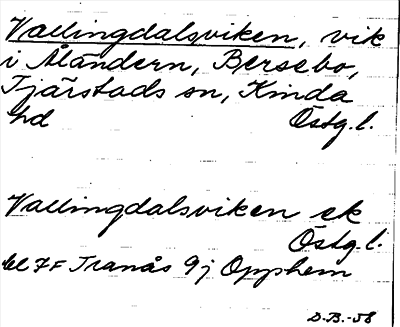 Vallingdalsviken, vik
i Åländern, Bersebo,
Tjärstads sn, Kinda
hd Östg.l.
Vallingdalsviken ek
Östg.l.
bl 7F Tranås 9j Opphem
D.B.-58